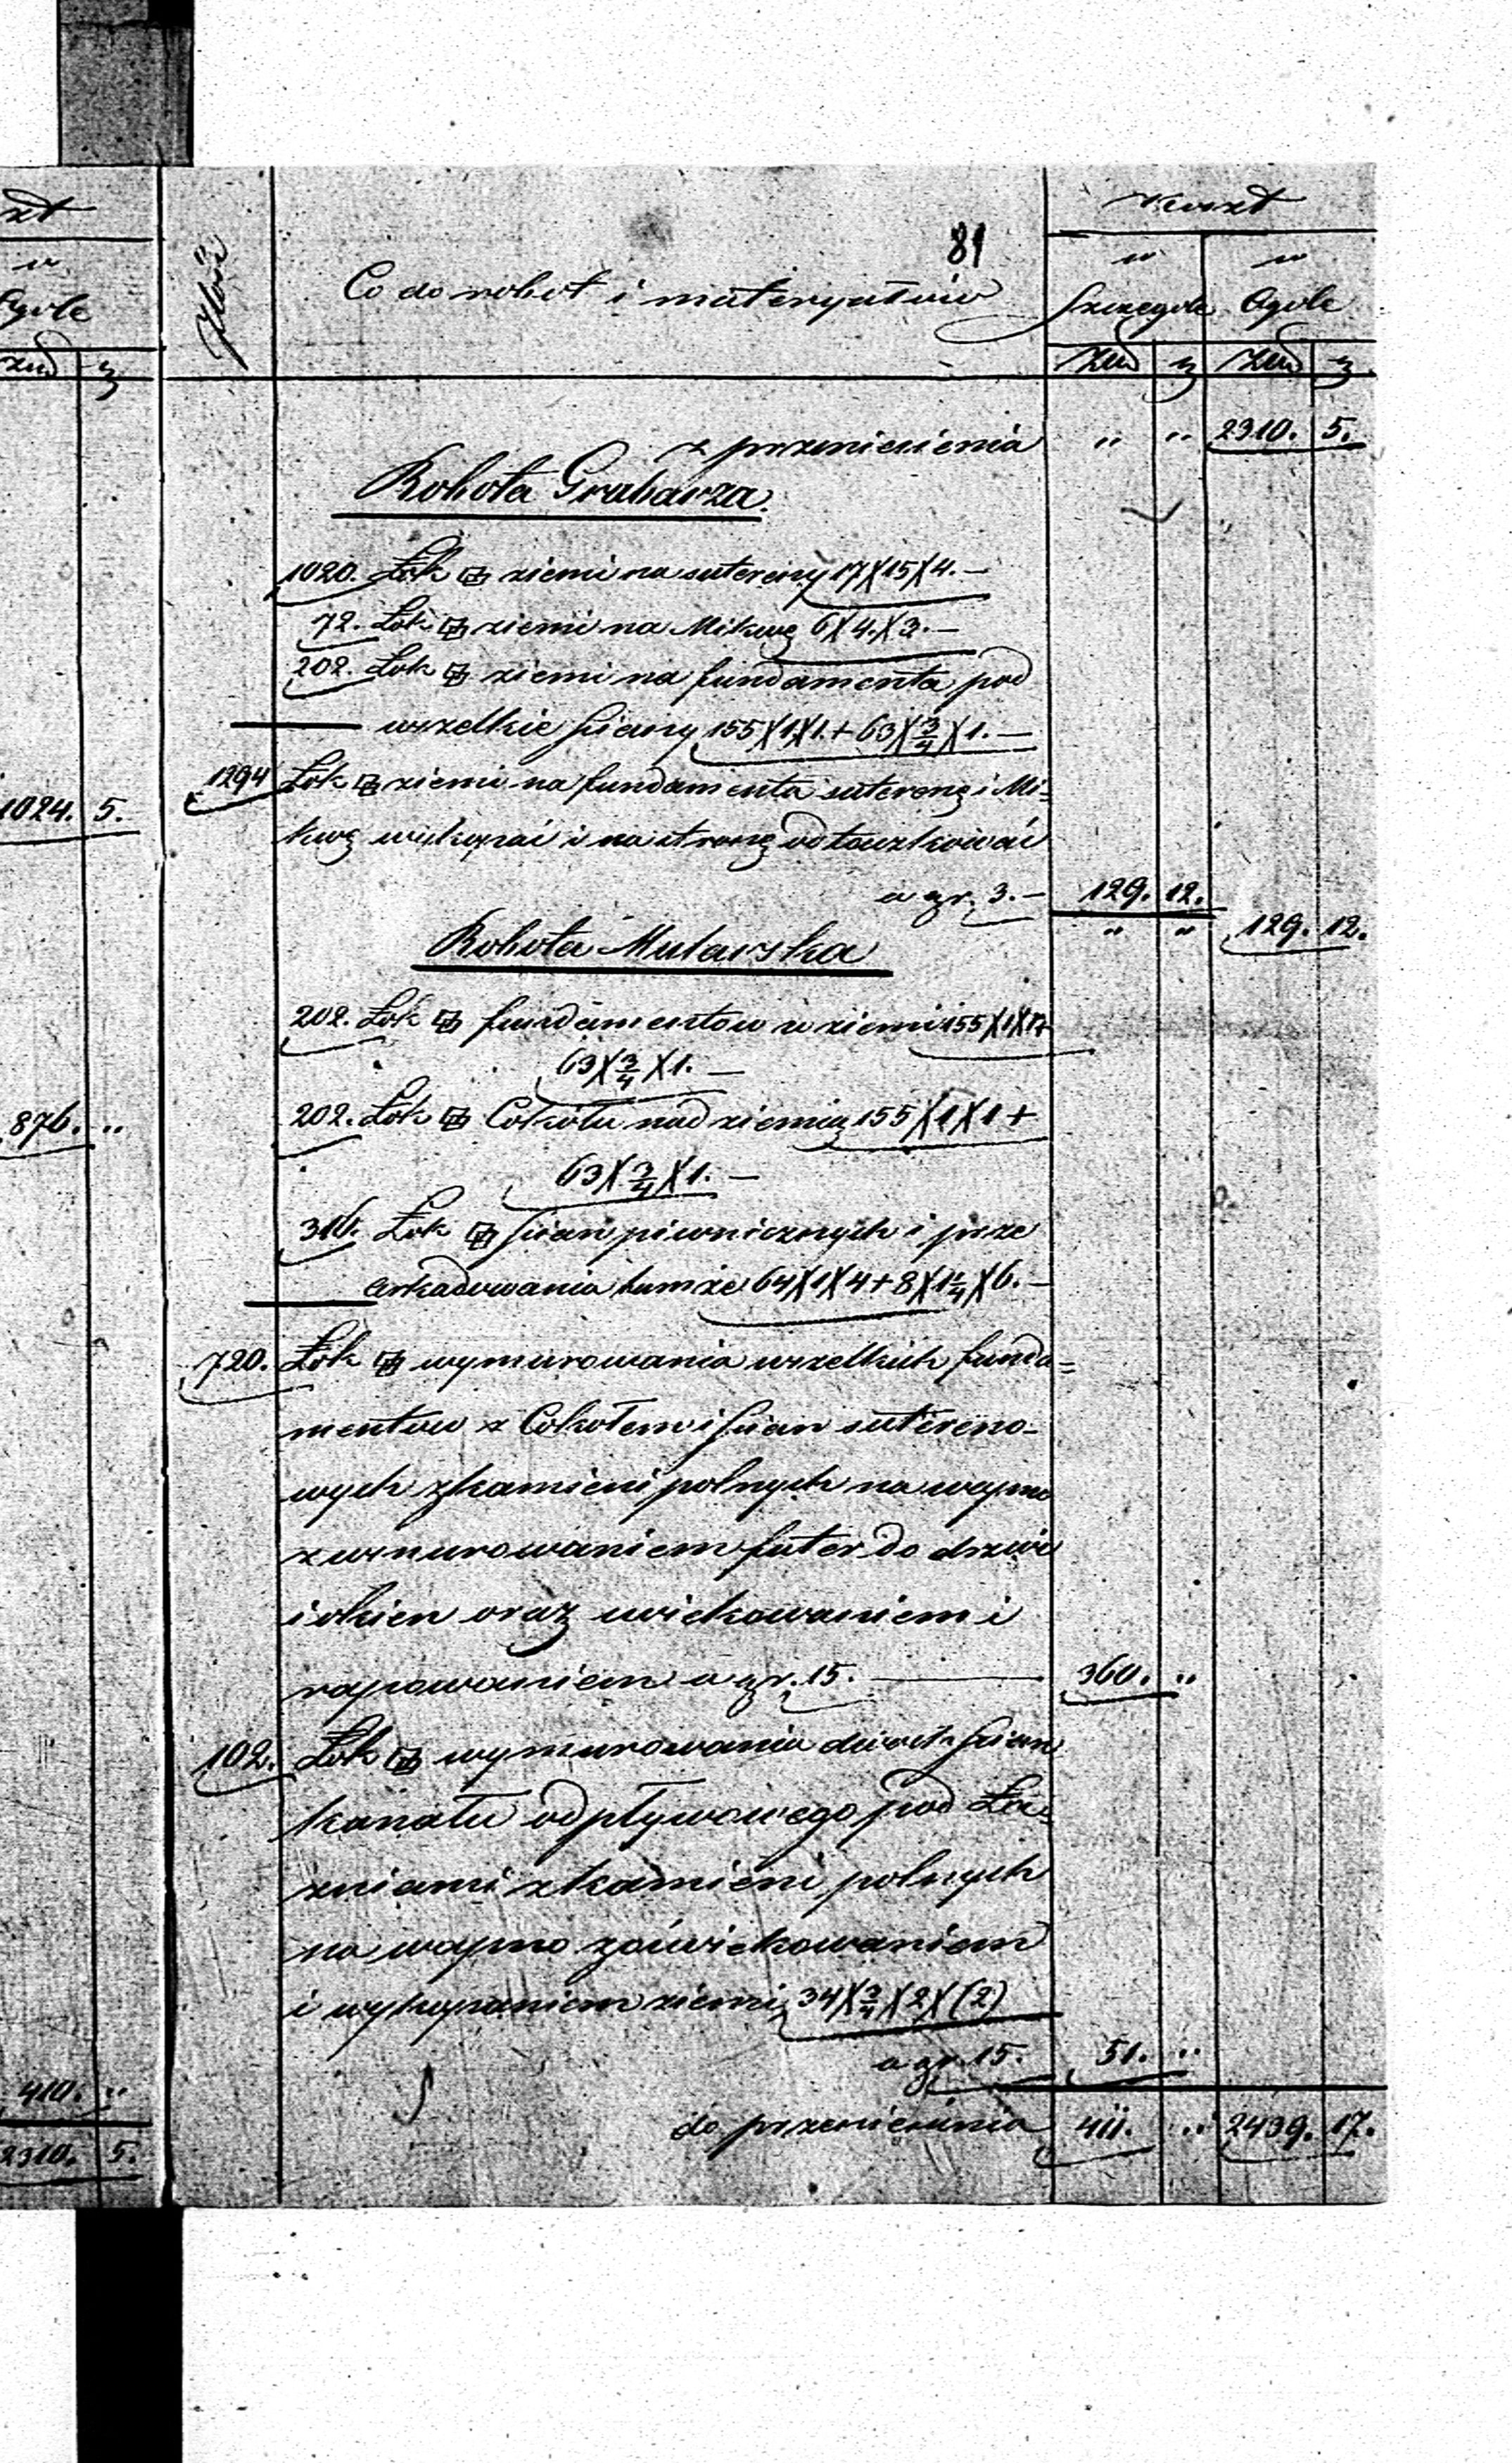 szt
w
Ogole
Zł. gr
1024. 5.
876. "
410. "
2310. 5.
81
Ilość
Co do robot i materyałów
Koszt
w Szczegole
w Ogole
z przeniesienia " " 2310. 5.
Robota Grabarza.
1020. Łok ziemi na suteriny 17X15X4. —
72. Łok ziemi na Mikwę 6X4.X3. —
202. Łok ziemi na fundamenta pod
wszelkie ściany 155X1X1.+63X3/4X1. —
1294 Łok ziemi na fundamenta suterenę i Mi=
kwę wykopać i na stronę odtaczkować
a gr. 3. — 129. 12.
" " 129. 12.
Robota Mularska
202. Łok fundamentow w ziemi 155X1X1+
63X3/4X1. —
202. Łok Cokołu nad ziemią 155X1X1+
63X3/4X1. —
316. Łok ścian piwnicznych i prze
arkadowania tamże 64X1X4+8X1 1/4X6. —
720. Łok wymurowania wszelkich funda=
mentow z Cokołem i ścian sutereno-
wych z kamieni polnych na wapno
z wmurowaniem futer do drzwi
i okien oraz uwickowaniem i
rapowaniem a gr. 15. — 360. "
102. Łok wymurowania dwoch ścian
kanału odpływowego pod Ła=
zniami z kamieni polnych
na wapno z óuwickowaniem
i wykopaniem ziemi 34X3/4X2X(2)
a gr. 15. 51. "
do przeniesienia 411. " 2439. 17.